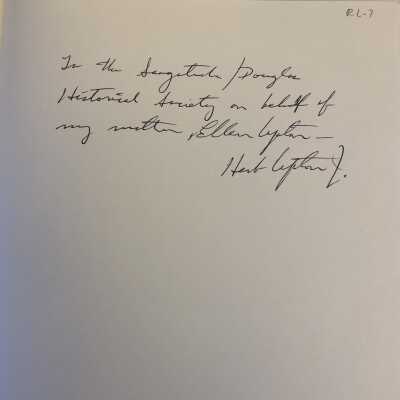 RL-7
To the Saugatuck/Douglas
Historical Society on behalf of
my mother, Ellen Lepton —
Herb Lepton Jr.